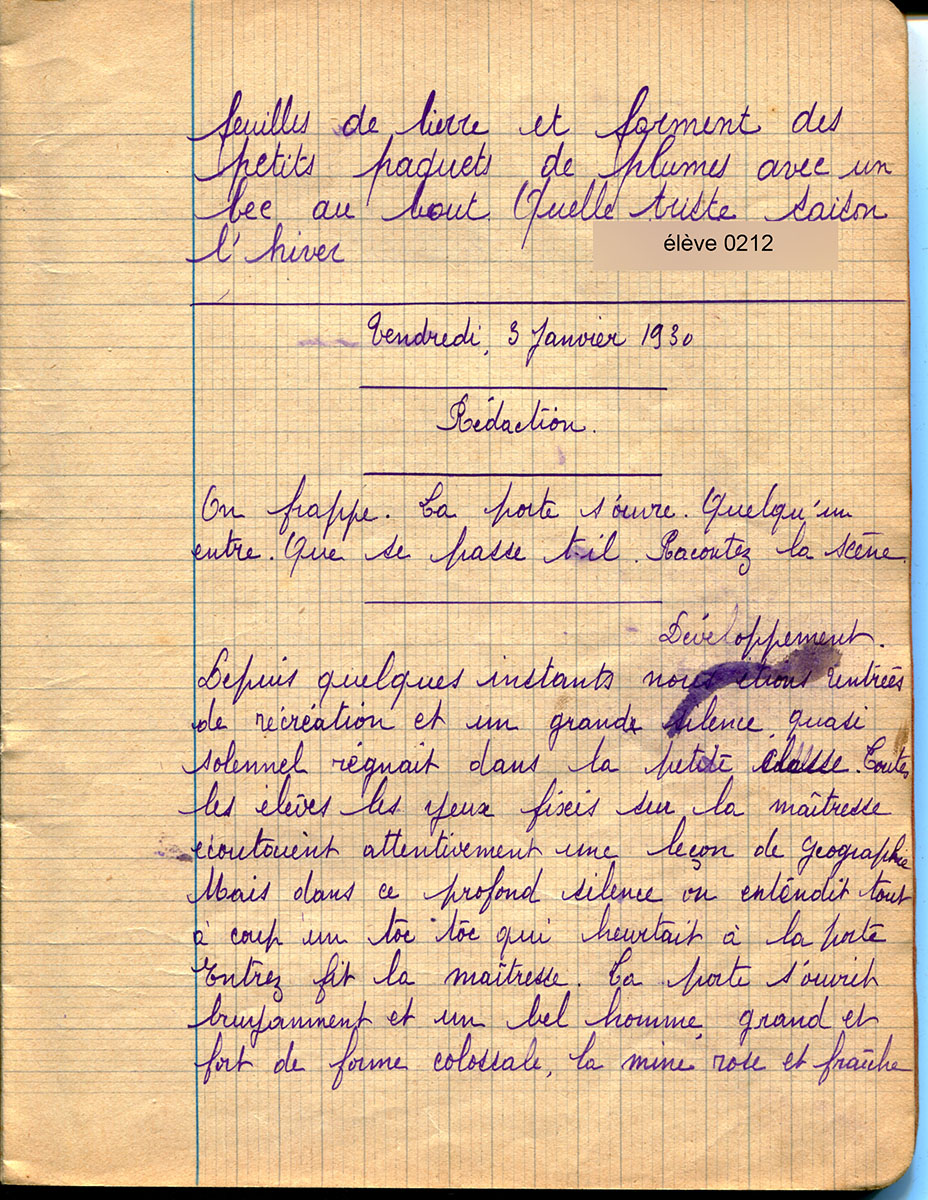 feuilles de lierre et forment des
petits paquets de plumes avec un
bec au bout Quelle triste saison
l'hiver
élève 0212
Vendredi, 3 Janvier 1930
Rédaction.
On frappe. La porte s'ouvre. Quelqu'un
entre. Que se passe t-il. Racontez la scène.
Développement.
Depuis quelques instants nous étions rentrées
de récréation et un grande silence quasi
solennel régnait dans la petite classe. Toutes
les élèves les yeux fixés sur la maîtresse
écoutaient attentivement une leçon de Géographie
Mais dans ce profond silence on entendit tout
à coup un toc toc qui heurtait à la porte
Entrez fit la maîtresse. La porte s'ouvrit
bruyamment et un bel homme, grand et
fort de forme colossale, la mine rose et fraîche